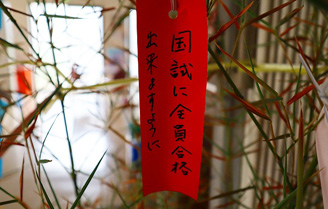 国試に全員合格
出来ますように